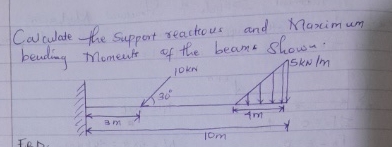 Calculate the support reactions and Maximum
bending Moments of the beams shown:
10KN
15KN/m
30°
3m
4m
10m